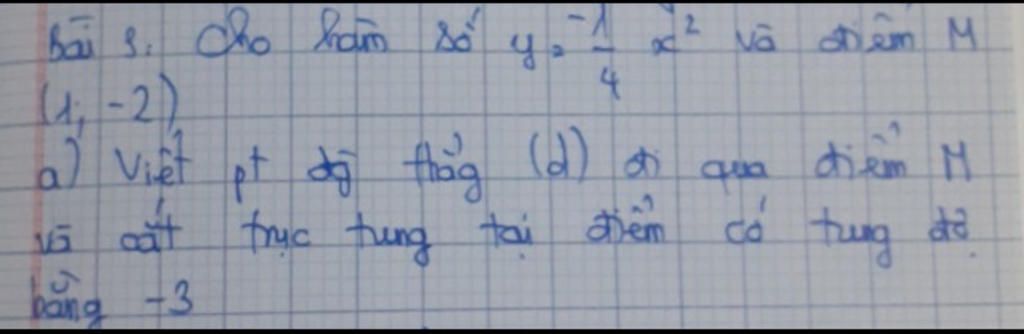 Bài 3: Cho hàm số y = -1/4 x² và điểm M
(1; -2)
a) Viết pt đg thẳg (d) đi qua điểm M
và cắt trục tung tại điểm có tung độ
bằng -3